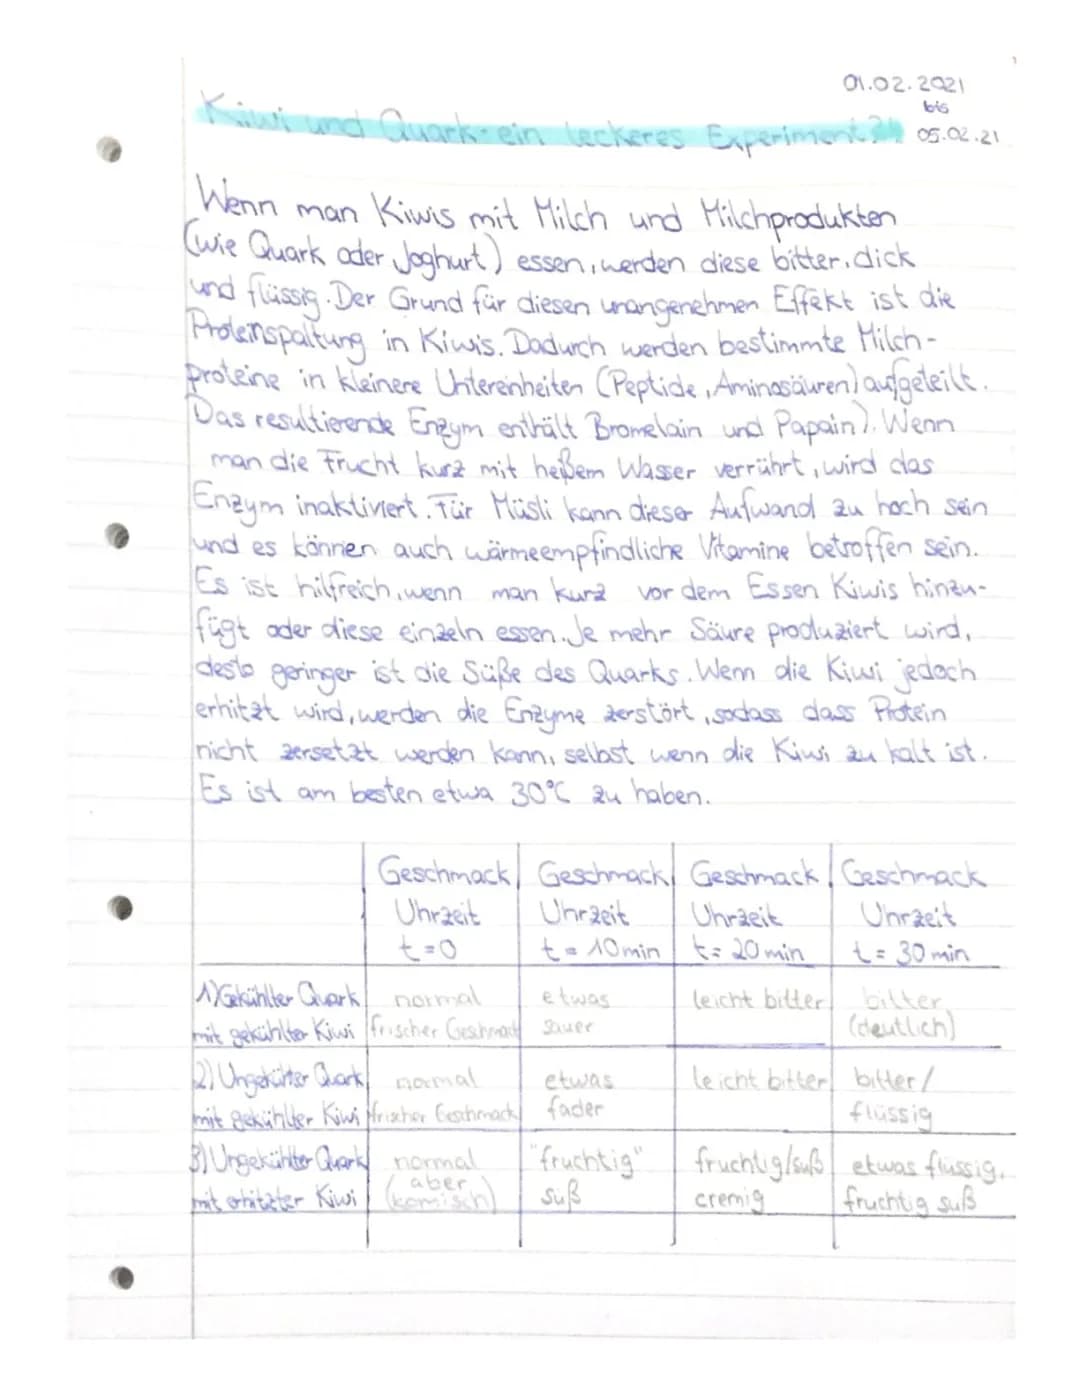 01.02.2021
bis
05.02.21
Kiwi und Quark: ein leckeres Experiment?!
Wenn man Kiwis mit Milch und Milchprodukten
(wie Quark oder Joghurt) essen, werden diese bitter, dick
und flüssig. Der Grund für diesen unangenehmen Effekt ist die
Proteinspaltung in Kiwis. Dadurch werden bestimmte Milch-
proteine in kleinere Untereinheiten (Peptide, Aminosäuren) aufgeteilt.
Das resultierende Enzym enthält Bromelain und Papain). Wenn
man die Frucht kurz mit heißem Wasser verrührt, wird das
Enzym inaktiviert. Für Müsli kann dieser Aufwand zu hoch sein
und es können auch wärmeempfindliche Vitamine betroffen sein.
Es ist hilfreich, wenn man kurz vor dem Essen Kiwis hinzu-
fügt oder diese einzeln essen. Je mehr Säure produziert wird,
desto geringer ist die Süße des Quarks. Wenn die Kiwi jedoch
erhitzt wird, werden die Enzyme zerstört, sodass dass Protein
nicht zersetzt werden kann, selbst wenn die Kiwi zu kalt ist.
Es ist am besten etwa 30°C zu haben.
Geschmack Geschmack Geschmack Geschmack
Uhrzeit Uhrzeit Uhrzeit Uhrzeit
t=0 t=10min t=20min t=30min
1) Gekühlter Quark normal etwas leicht bitter bitter
mit gekühlter Kiwi frischer Geschmack sauer (deutlich)
2) Ungekühlter Quark normal etwas leicht bitter bitter/
mit gekühlter Kiwi frischer Geschmack fader flüssig
3) Ungekühlter Quark normal "fruchtig" fruchtig/süß etwas flüssig,
mit erhitzter Kiwi aber (komisch) süß cremig fruchtig süß